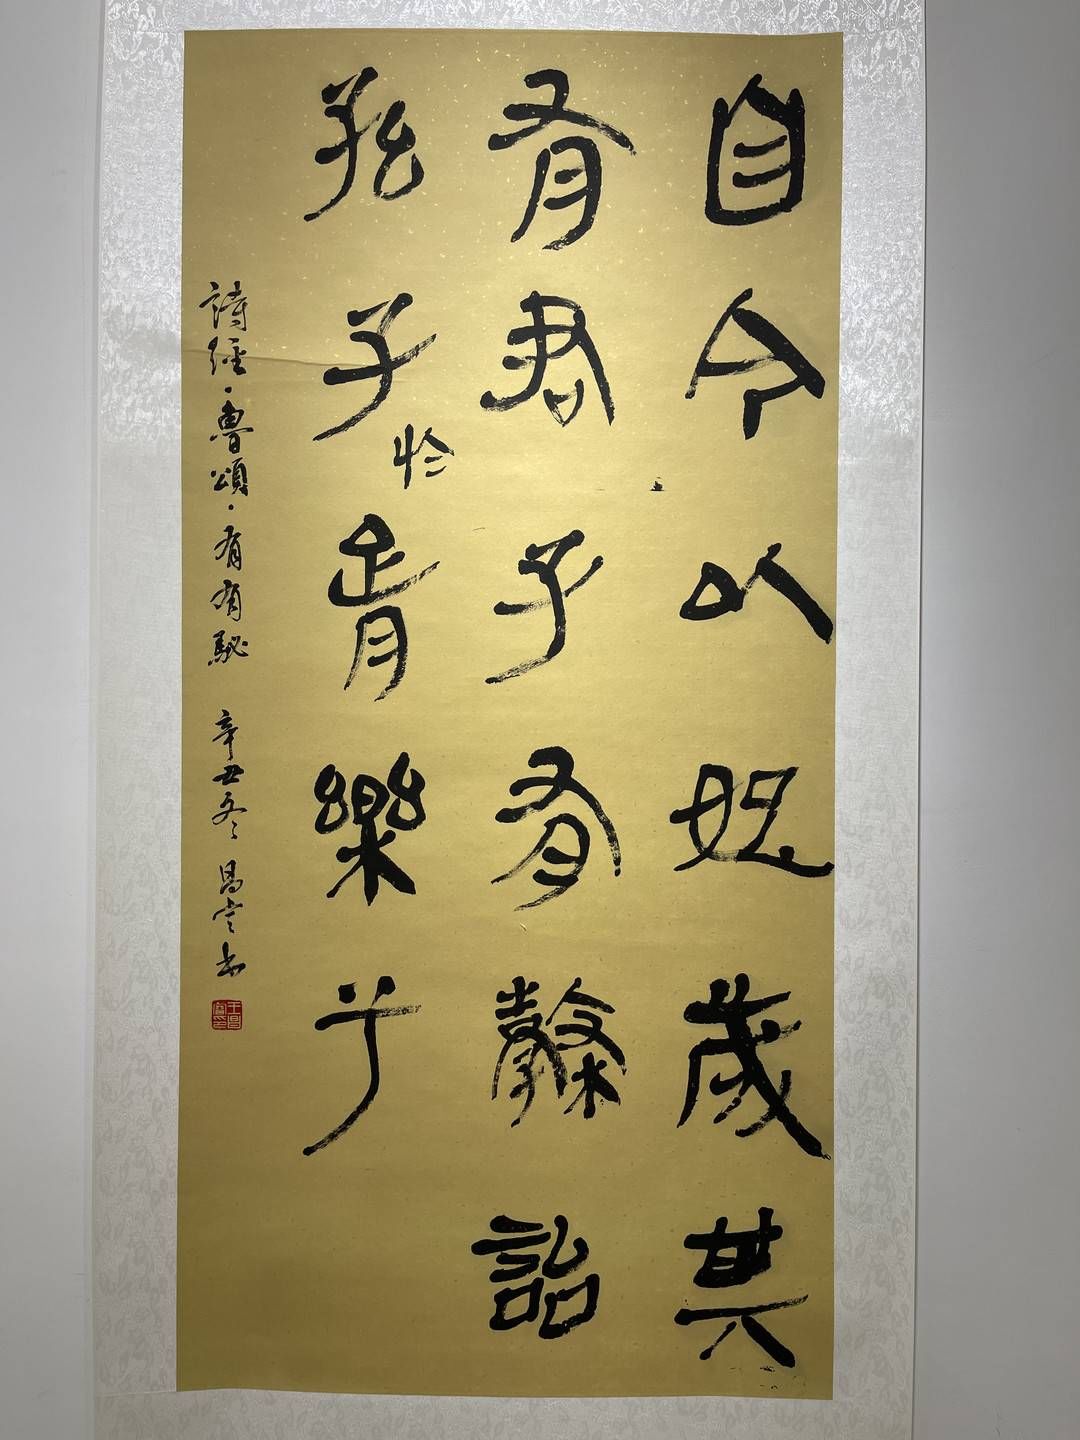 自今以始歲其
有君子有穀詒
孫子於胥樂兮
詩經·魯頌·有有駜 辛丑冬 昌 书